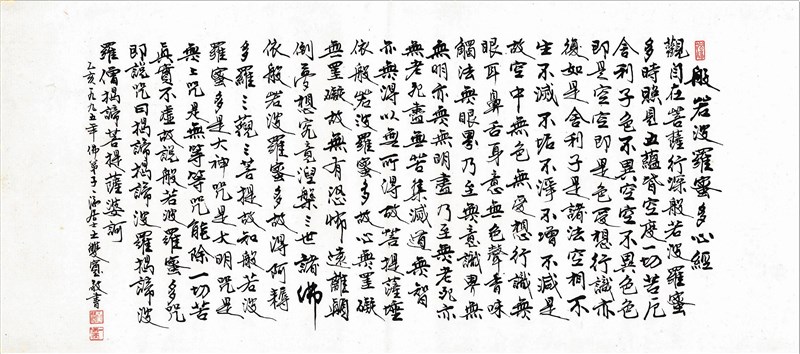 般若波羅蜜多心經
觀自在菩薩行深般若波羅蜜
多時照見五蘊皆空度一切苦厄
舍利子色不異空空不異色色
即是空空即是色受想行識亦
復如是舍利子是諸法空相不
生不滅不垢不淨不增不減是
故空中無色無受想行識無
眼耳鼻舌身意無色聲香味
觸法無眼界乃至無意識界無
無明亦無無明盡乃至無老死亦
無老死盡無苦集滅道無智
亦無得以無所得故菩提薩埵
依般若波羅蜜多故心無罣礙
無罣礙故無有恐怖遠離顛
倒夢想究竟涅槃三世諸佛
依般若波羅蜜多故得阿耨
多羅三藐三菩提故知般若波
羅蜜多是大神咒是大明咒是
無上咒是無等等咒能除一切苦
真實不虛故說般若波羅蜜多咒
即說咒曰揭諦揭諦波羅揭諦波
羅僧揭諦菩提薩婆訶
乙亥一九九五年佛弟子居士雙寶敬書